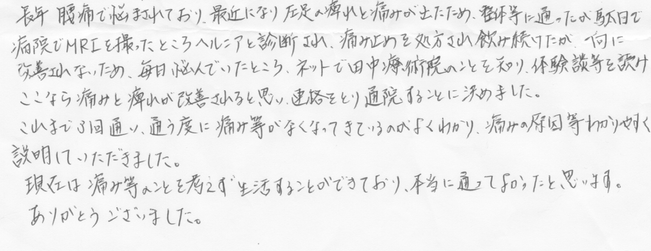 長年 腰痛で悩まされており、最近になり左足の痺れと痛みが出たため、整体等に通ったが駄目で
病院でMRIを撮ったところヘルニアと診断され、痛み止めを処方され飲み続けたが、何に
改善されないため、毎日悩んでいたところ、ネットで田中療術院のことを知り、体験談等を読み
ここなら痛みと痺れが改善されると思い、連絡をとり通院することに決めました。
これまで3回通い、通う度に痛み等がなくなってきているのがよくわかり、痛みの原因等わかりやすく
説明していただきました。
現在は痛み等のことを考えず生活することができており、本当に通ってよかったと思います。
ありがとうございました。